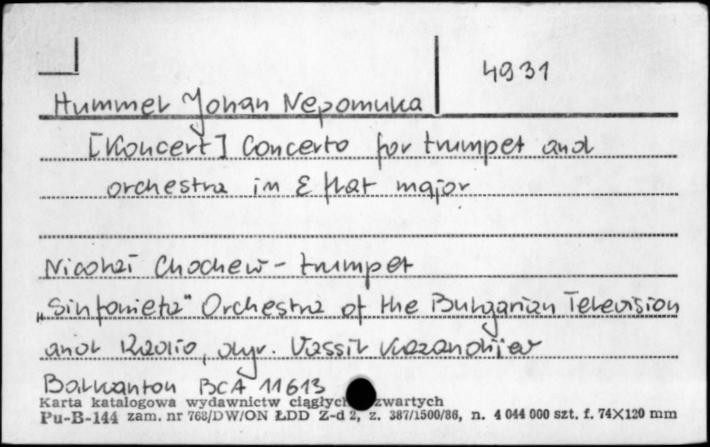 4931
Hummel Johan Nepomuka
[Koncert] Concerto for trumpet and
orchestra in E flat major
Nicolai Chochew - trumpet
„Sinfonieta" Orchestra of the Bulgarian Television
and Radio, dyr. Vassil Kazandhijev
Balkanton BCA 11613
Karta katalogowa wydawnictw ciągłych zwartych
Pu-B-144 zam. nr 768/DW/ON ŁDD Z-d 2, z. 387/1500/86, n. 4 044 000 szt. f. 74×120 mm